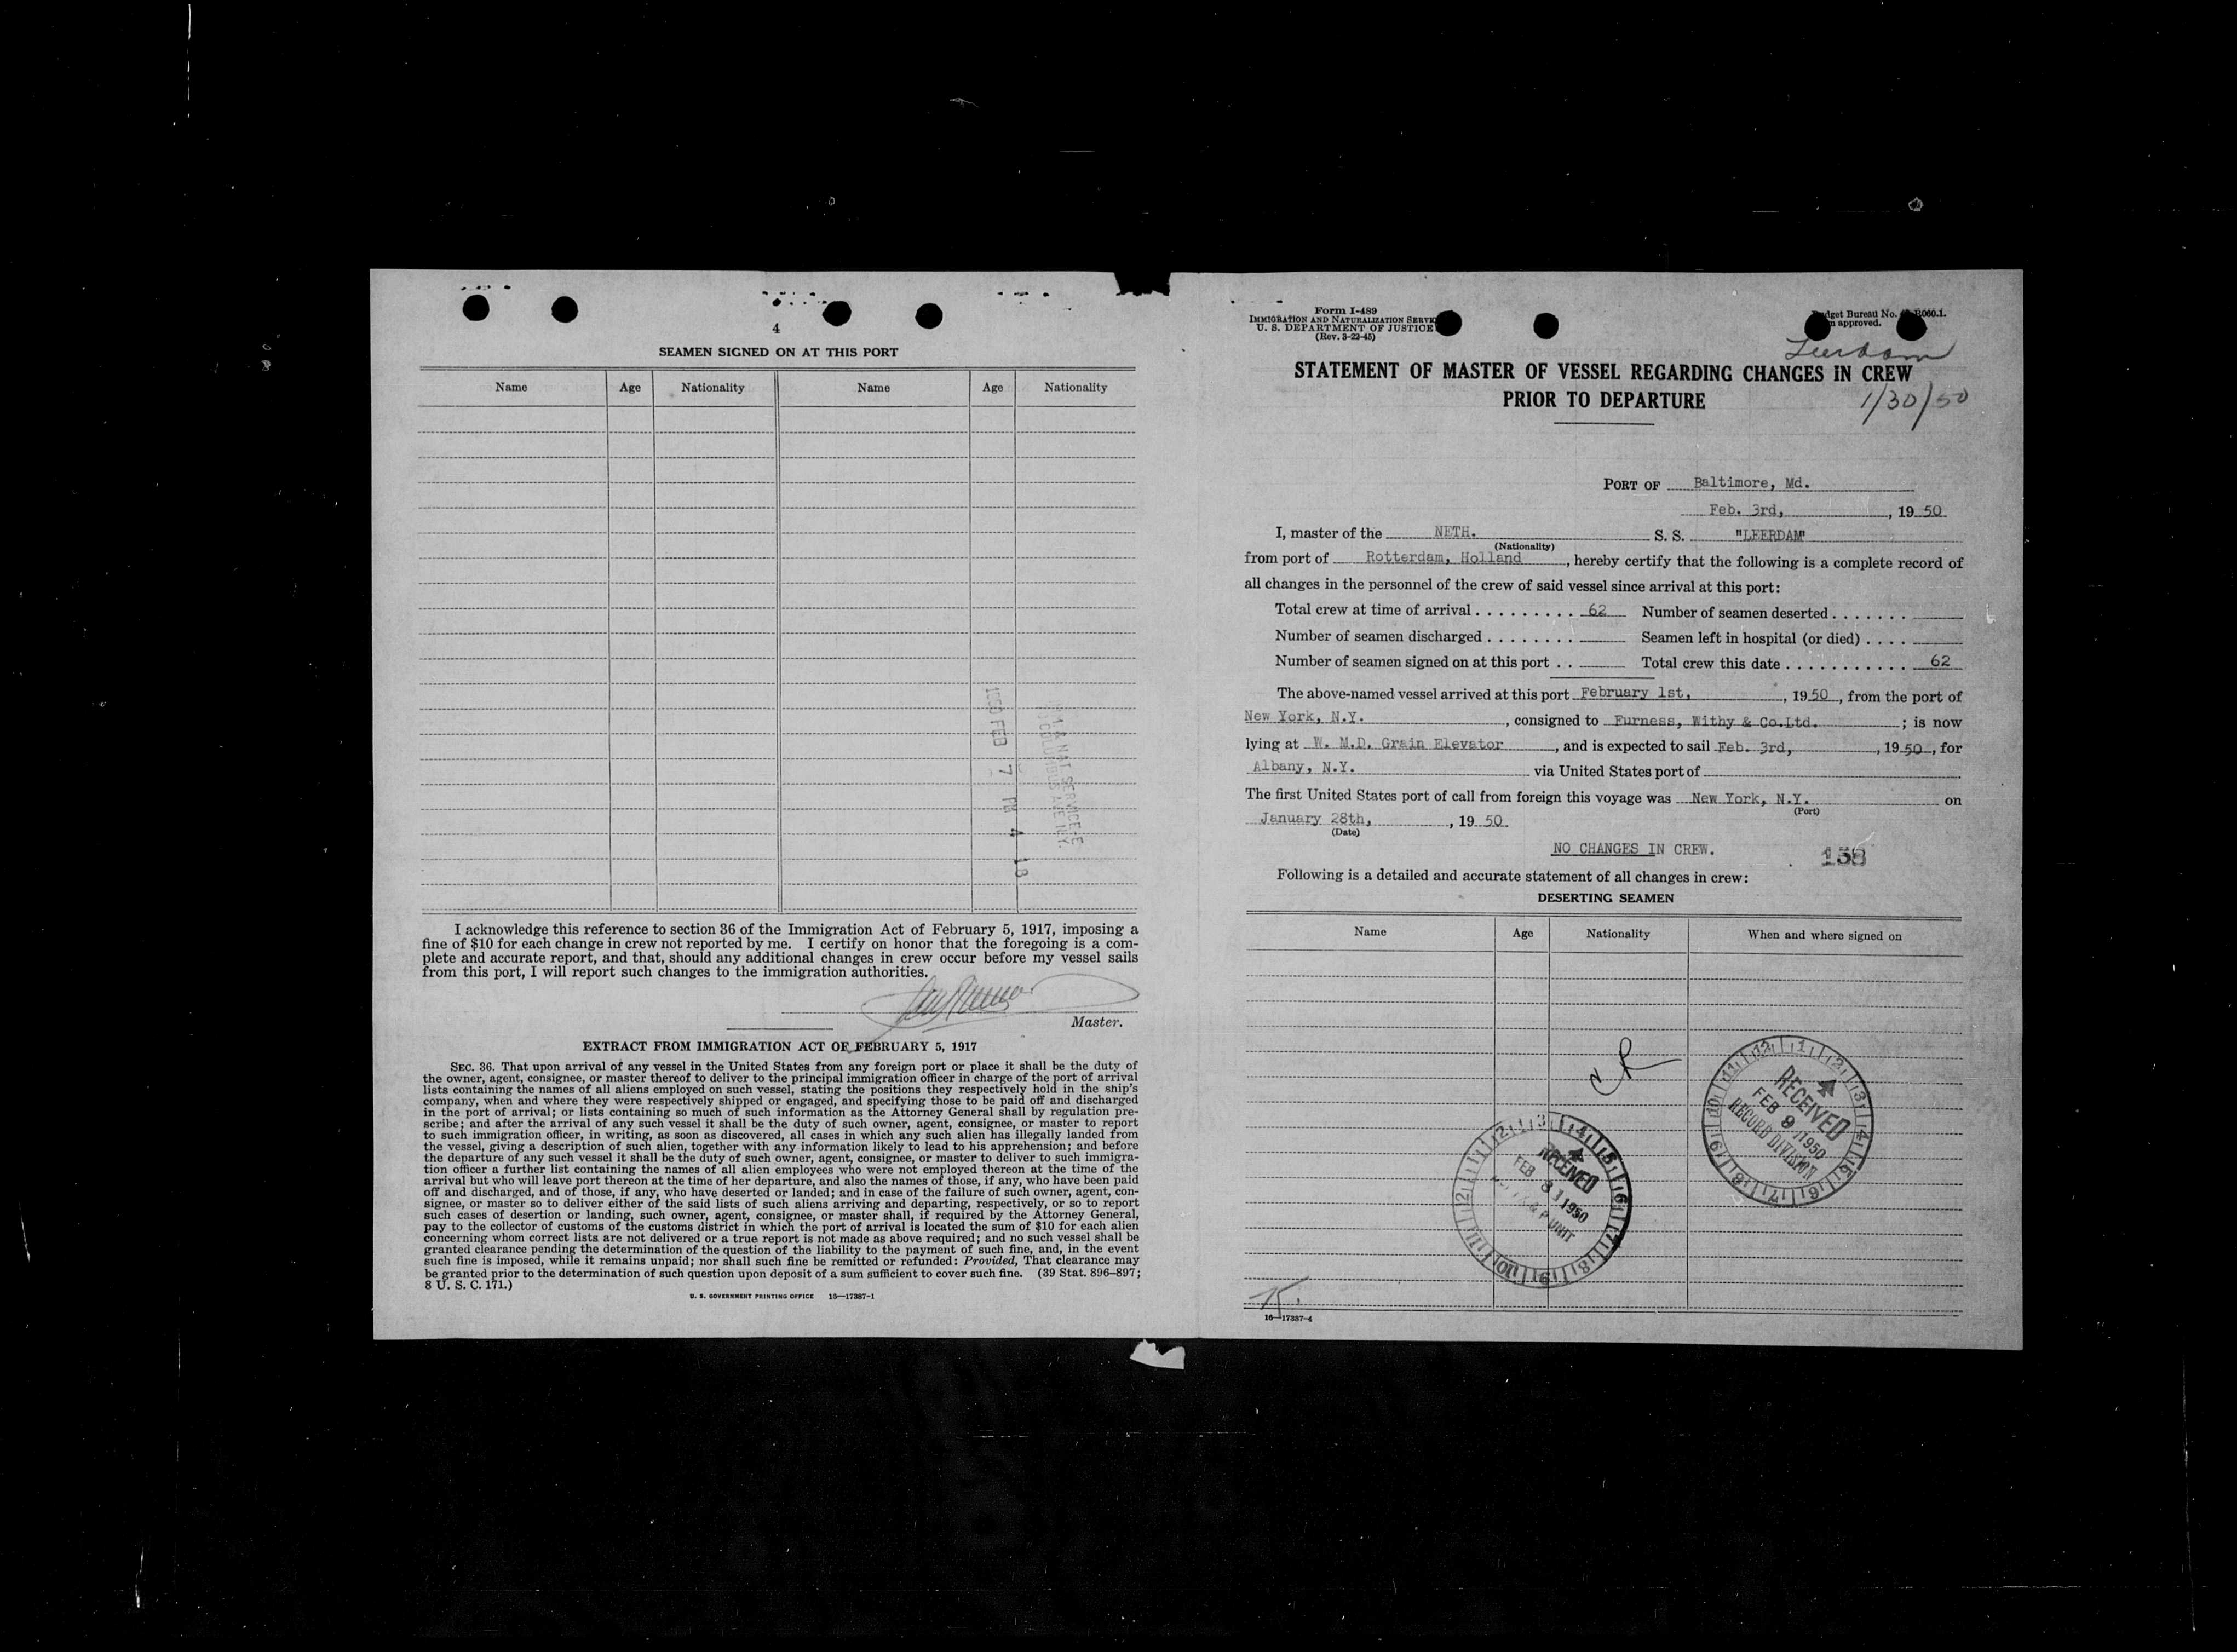 4
SEAMEN SIGNED ON AT THIS PORT
Name Age Nationality Name Age Nationality
1950 FEB 7 PM 4 18
I acknowledge this reference to section 36 of the Immigration Act of February 5, 1917, imposing a
fine of $10 for each change in crew not reported by me. I certify on honor that the foregoing is a com-
plete and accurate report, and that, should any additional changes in crew occur before my vessel sails
from this port, I will report such changes to the immigration authorities.
Master.
EXTRACT FROM IMMIGRATION ACT OF FEBRUARY 5, 1917
SEC. 36. That upon arrival of any vessel in the United States from any foreign port or place it shall be the duty of
the owner, agent, consignee, or master thereof to deliver to the principal immigration officer in charge of the port of arrival
lists containing the names of all aliens employed on such vessel, stating the positions they respectively hold in the ship's
company, when and where they were respectively shipped or engaged, and specifying those to be paid off and discharged
in the port of arrival; or lists containing so much of such information as the Attorney General shall by regulation pre-
scribe; and after the arrival of any such vessel it shall be the duty of such owner, agent, consignee, or master to report
to such immigration officer, in writing, as soon as discovered, all cases in which any such alien has illegally landed from
the vessel, giving a description of such alien, together with any information likely to lead to his apprehension; and before
the departure of any such vessel it shall be the duty of such owner, agent, consignee, or master to deliver to such immigra-
tion officer a further list containing the names of all alien employees who were not employed thereon at the time of the
arrival but who will leave port thereon at the time of her departure, and also the names of those, if any, who have been paid
off and discharged, and of those, if any, who have deserted or landed; and in case of the failure of such owner, agent, con-
signee, or master so to deliver either of the said lists of such aliens arriving and departing, respectively, or so to report
such cases of desertion or landing, such owner, agent, consignee, or master shall, if required by the Attorney General,
pay to the collector of customs of the customs district in which the port of arrival is located the sum of $10 for each alien
concerning whom correct lists are not delivered or a true report is not made as above required; and no such vessel shall be
granted clearance pending the determination of the question of the liability to the payment of such fine, and, in the event
such fine is imposed, while it remains unpaid; nor shall such fine be remitted or refunded: Provided, That clearance may
be granted prior to the determination of such question upon deposit of a sum sufficient to cover such fine. (39 Stat. 896–897;
8 U. S. C. 171.)
U. S. GOVERNMENT PRINTING OFFICE 16—17387-1
Form I-489
IMMIGRATION AND NATURALIZATION SERVICE
U. S. DEPARTMENT OF JUSTICE
(Rev. 3-22-45)
Bureau No.
approved.
Leerdam
STATEMENT OF MASTER OF VESSEL REGARDING CHANGES IN CREW
PRIOR TO DEPARTURE
1/30/50
PORT OF Baltimore, Md.
Feb. 3rd, , 19 50
I, master of the NETH. S. S. "LEERDAM"
(Nationality)
from port of Rotterdam, Holland , hereby certify that the following is a complete record of
all changes in the personnel of the crew of said vessel since arrival at this port:
Total crew at time of arrival . . . . . . . . . 62 Number of seamen deserted . . . . . . .
Number of seamen discharged . . . . . . . . Seamen left in hospital (or died) . . . .
Number of seamen signed on at this port . . Total crew this date . . . . . . . . . . . 62
The above-named vessel arrived at this port February 1st, , 19 50 , from the port of
New York, N.Y. , consigned to Furness, Withy & Co.Ltd. ; is now
lying at W. M.D. Grain Elevator , and is expected to sail Feb. 3rd, , 19 50 , for
Albany, N.Y. via United States port of
The first United States port of call from foreign this voyage was New York, N.Y. on
(Port)
January 28th, , 19 50
(Date)
NO CHANGES IN CREW.
138
Following is a detailed and accurate statement of all changes in crew:
DESERTING SEAMEN
Name Age Nationality When and where signed on
RECEIVED
FEB 9 1950
RECORD DIVISION
RECEIVED
FEB 8 1950
UNIT
16—17387-4